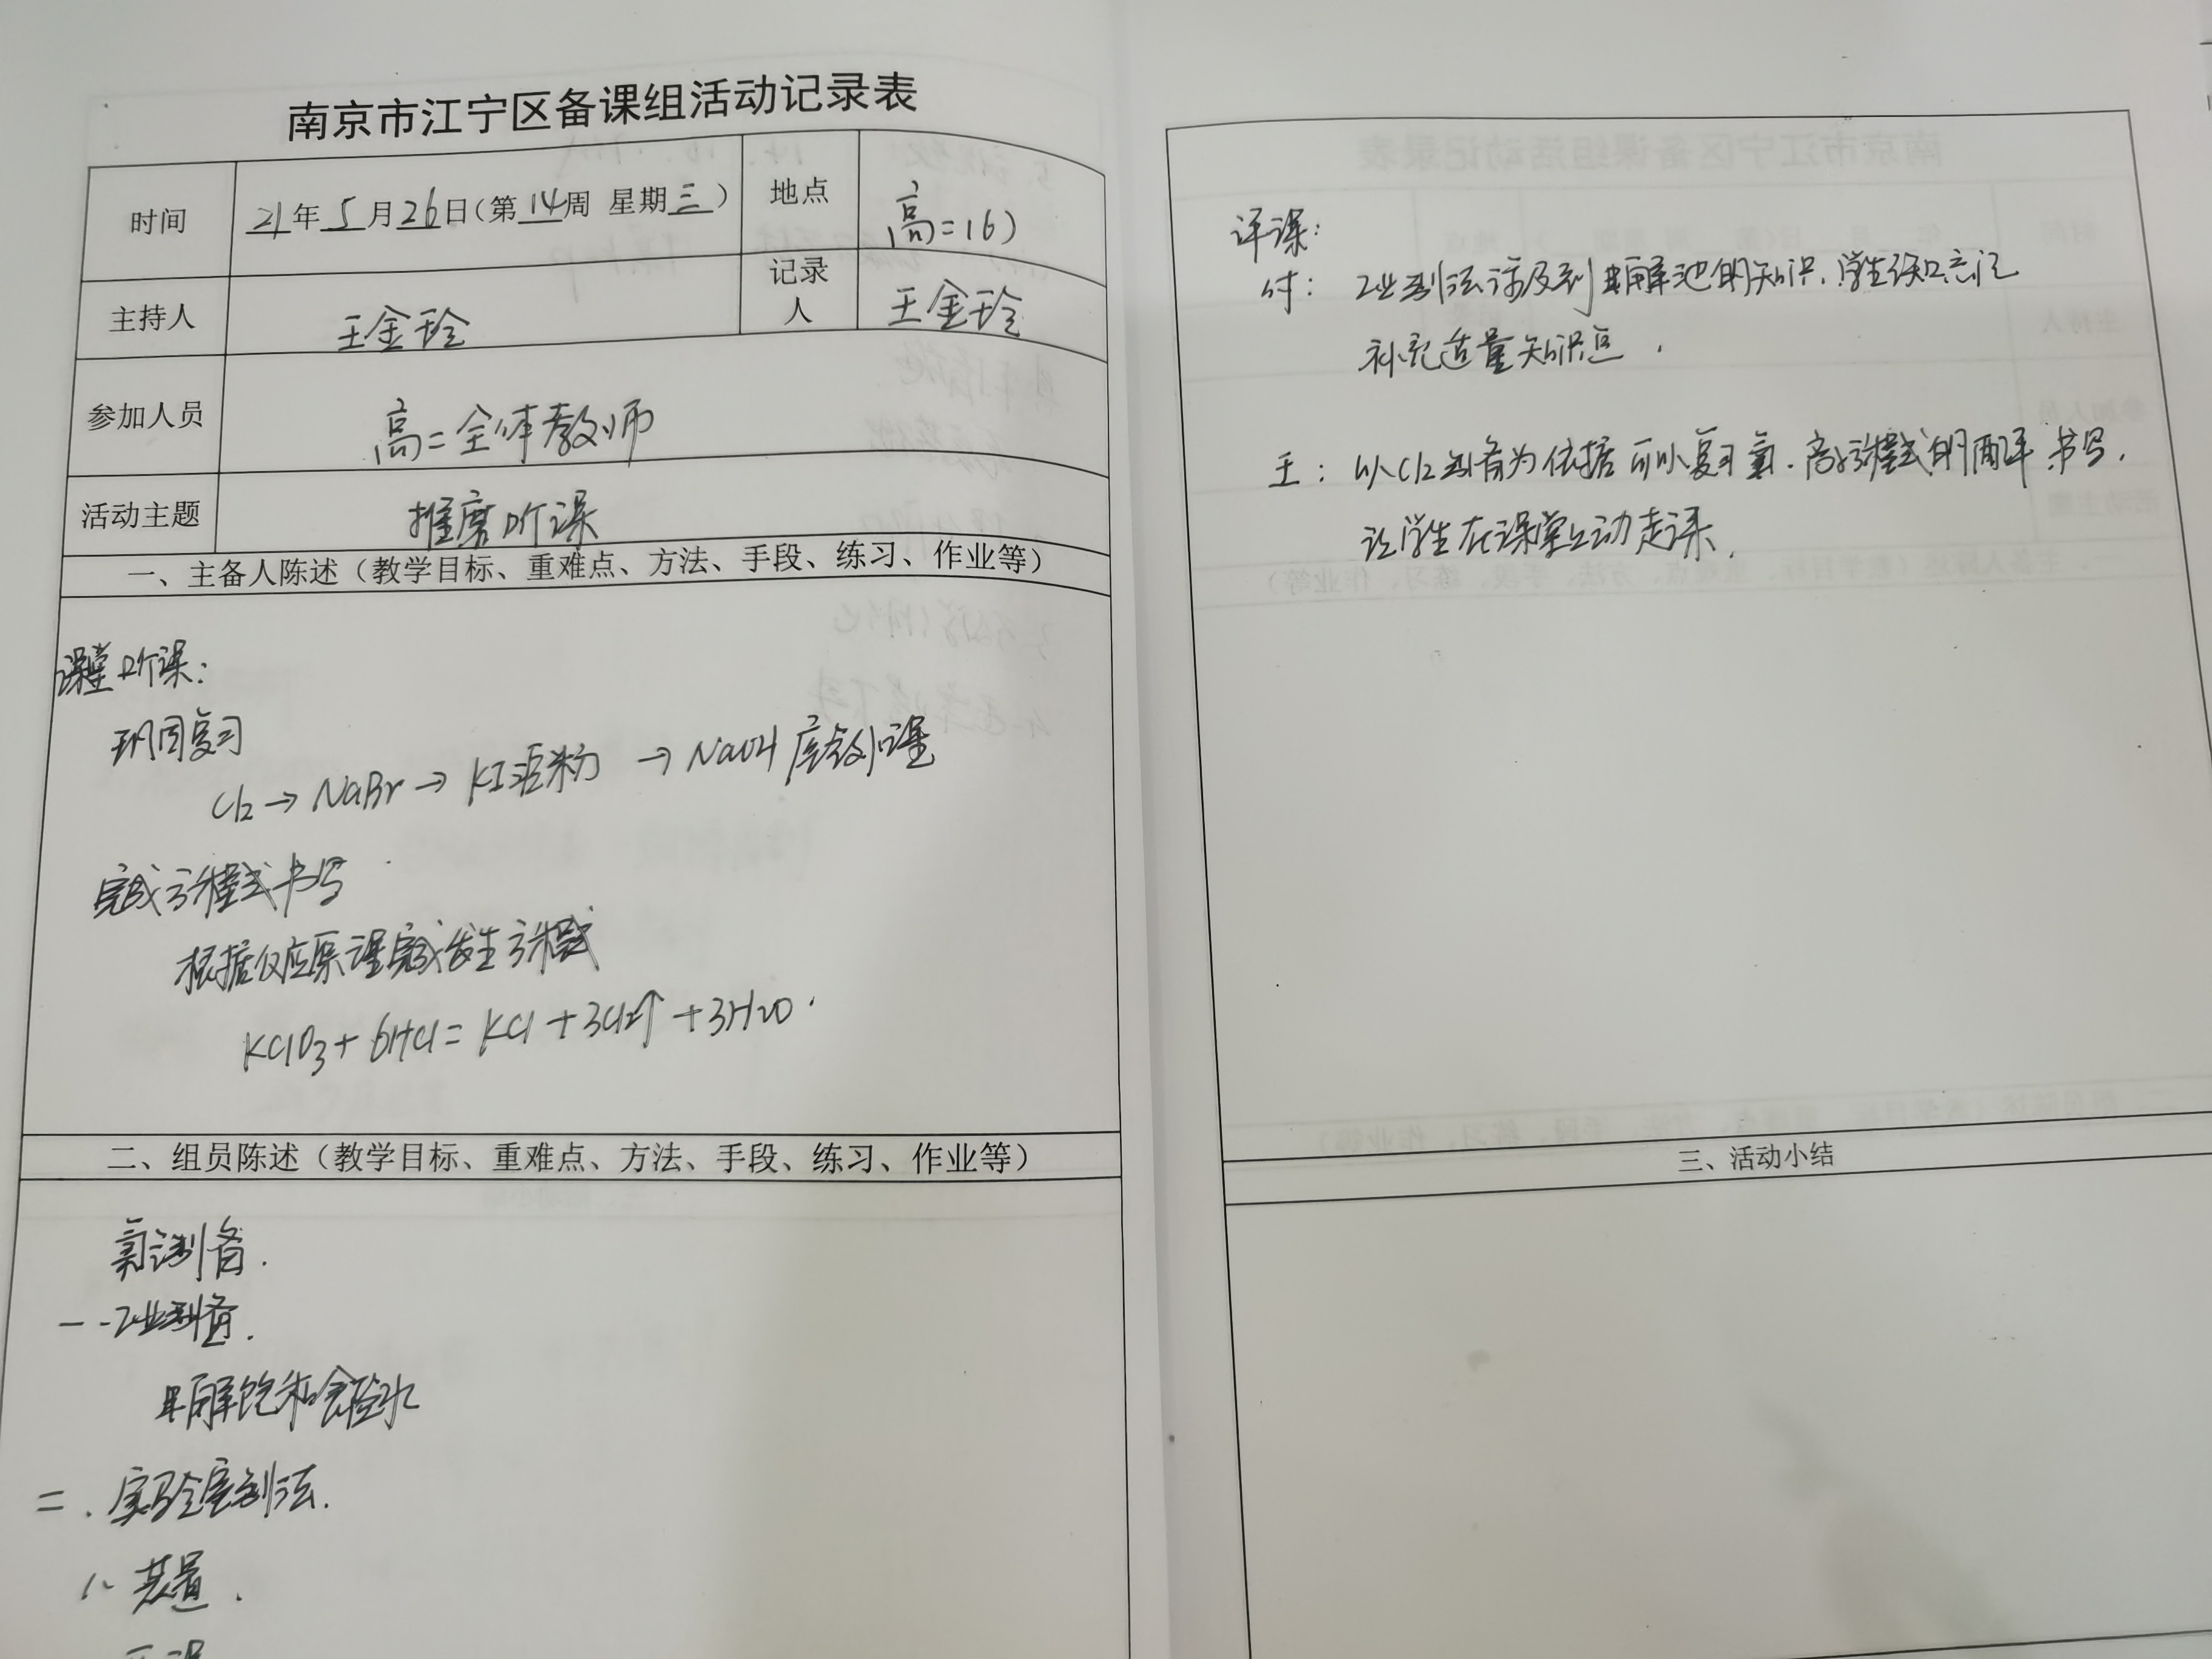 南京市江宁区备课组活动记录表
时间 21年5月26日(第14周 星期三) 地点 高二16)
主持人 王金玲 记录人 王金玲
参加人员 高二全体教师
活动主题 推磨听课
一、主备人陈述（教学目标、重难点、方法、手段、练习、作业等）
课堂听课：
巩固复习
Cl2→NaBr→KI淀粉→NaOH 尾气处理
完成方程式书写
根据反应原理完成发生方程式
KClO3+6HCl=KCl+3Cl2↑+3H2O.
二、组员陈述（教学目标、重难点、方法、手段、练习、作业等）
氯制备.
一.工业制备.
电解饱和食盐水
二.实验室制法.
1、装置.
评课：
付：工业制法涉及到电解池的知识，学生忘记
补充适量知识点.
王：以Cl2制备为依据可以复习氧.方程式的配平.书写，
让学生在课堂上动
三、活动小结